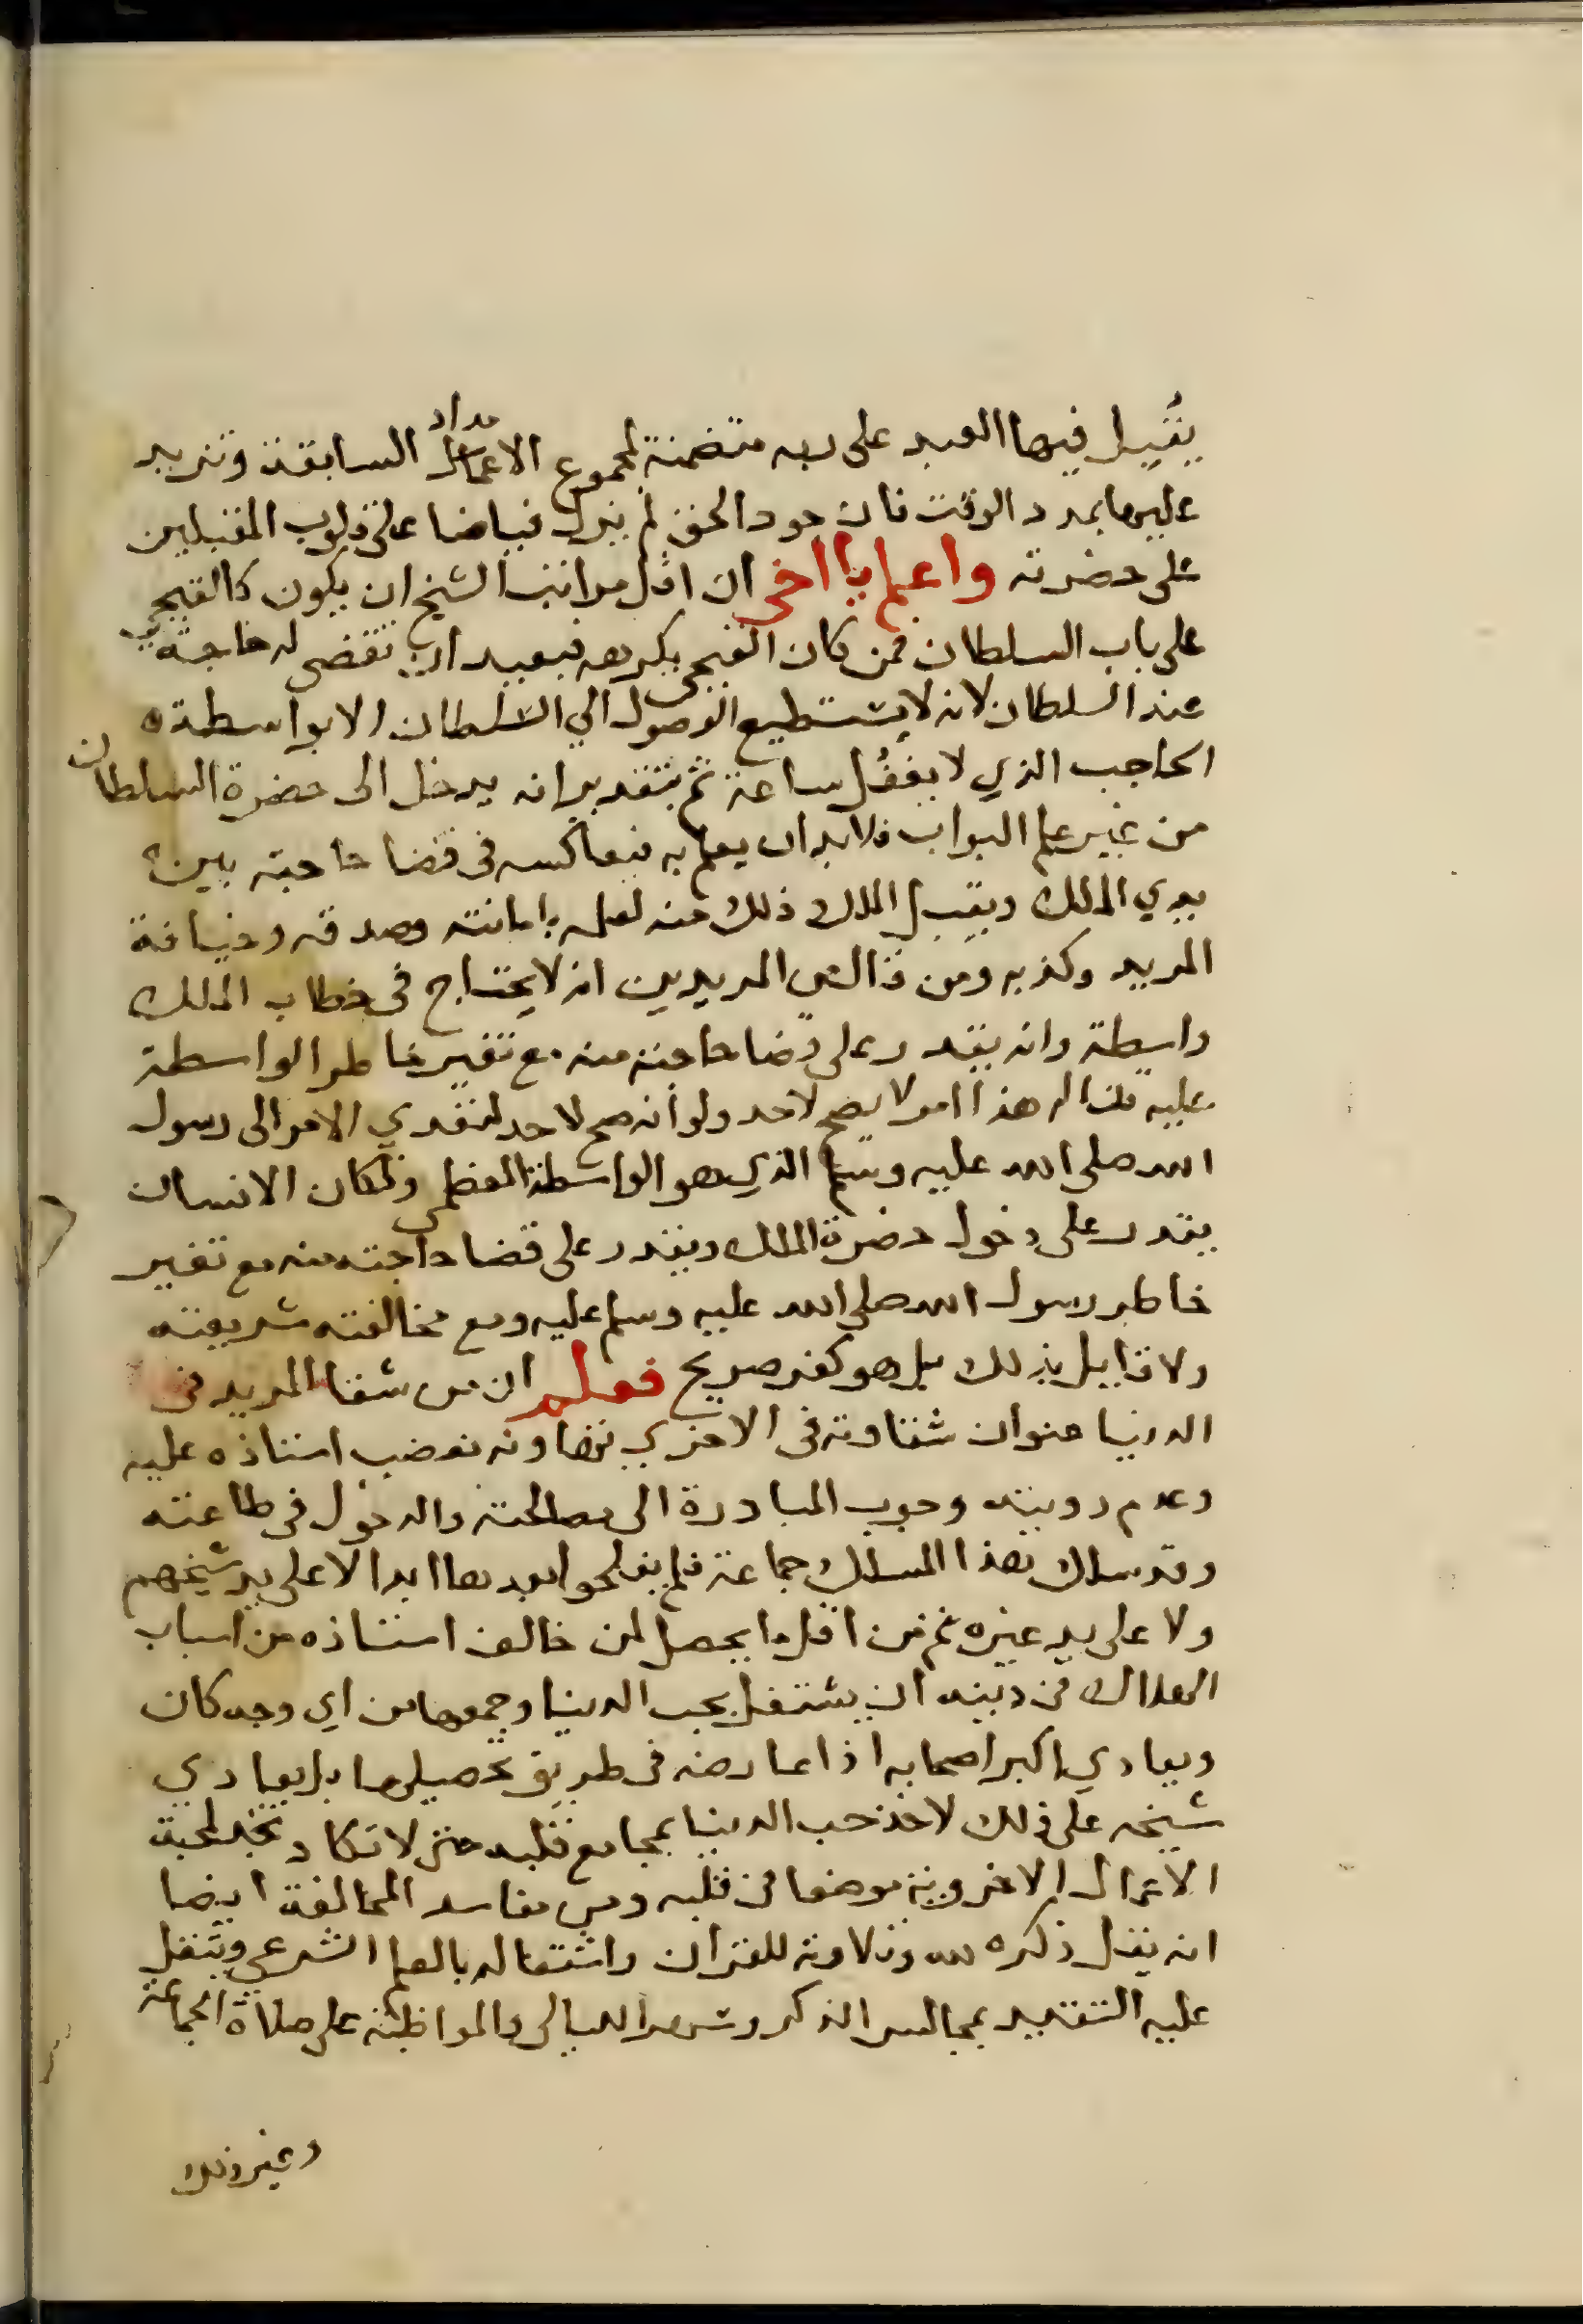 يقبل فيها العبد على ربه متضمنة لمجموع الامداد السابقة وتزيد
عليها بمدد الوقت فان جود الحق لم يزل فياضا على قلوب المقبلين
على حضرته واعلم يا اخي ان اقل مراتب الشيخ ان يكون كالقبجي
على باب السلطان فمن كان القبجي يكرهه فبعيد ان تقضى له حاجة
عند السلطان لانه لا يستطيع الوصول الي السلطان الا بواسطة
الحاجب الذي لا يغفل ساعة ثم بتقدير انه يدخل الى حضرة السلطان
من غير علم البواب فلابد ان يعلم به فيعاكسه في قضا حاجته بين
يدي الملك ويقبل الملك ذلك منه لعلمه بامانته وصدقه وخيانة
المريد وكذبه ومن قال من المريدين انه لا يحتاج في خطاب الملك
واسطة وانه يقدر على قضا حاجته منه مع تغير خاطر الواسطة
عليه قلنا له هذا امر لا يصح لاحد ولو انه صح لاحد لتعدي الامر الى رسول
الله صلى الله عليه وسلم الذي هو الواسطة العظمى ولكان الانسان
يقدر على دخول حضرة الملك ويقدر على قضا حاجته منه مع تغير
خاطر رسول الله صلى الله عليه وسلم عليه ومع مخالفته شريعته
ولا قايل بذلك بل هو كفر صريح فعلم ان من شقا المريد في
الدنيا عنوان شقاوته في الاخري تهاونه بغضب استاذه عليه
وعدم رويته وجوب المبادرة الى مصالحته والدخول في طاعته
وقد سلك هذا المسلك جماعة فلم يفلحوا بعدها ابدا لا على يد شيخهم
ولا على يد غيره ثم من اقل ما يحصل لمن خالف استاذه من اسباب
الهلاك في دينه ان يشتغل بحب الدنيا وجمعها من اي وجه كان
ويعادي اكبر اصحابه اذا عارضه في طريق تحصيلها بل يعادي
شيخه على ذلك لاخذ حب الدنيا بمجامع قلبه حتى لا تكاد تجد لمحبة
الاعمال الاخروية موضعا في قلبه ومن مفاسد المخالفة ايضا
انه يقل ذكره لله وتلاوته للقران واشتغاله بالعلم الشرعي ويثقل
عليه التقيد بمجالس الذكر وسهر الليالى والمواظبة على صلاة الجماعة
وغير ذلك